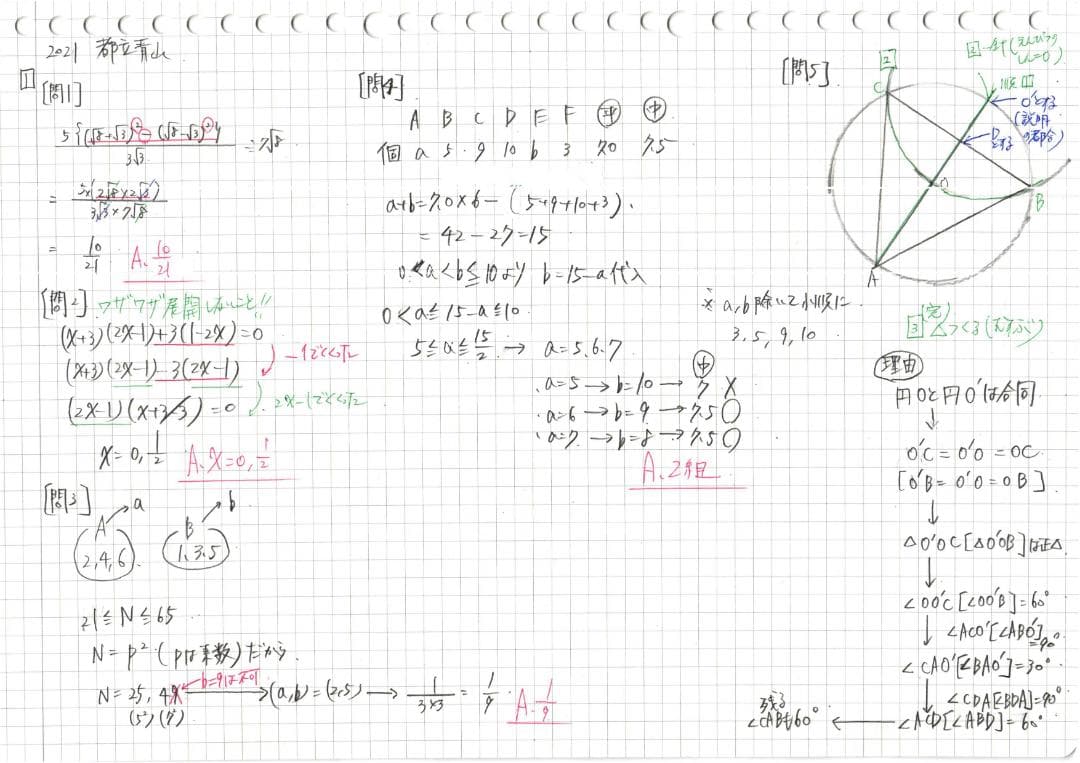 2021 都立青山
1
[問1]
5{(√8+√3)²-(√8-√3)²}/3√3 ÷ 7√8
= 5×(2√8×2√3)/3√3×7√8
= 10/21 A. 10/21
[問2] ワザワザ展開しないこと!!
(x+3)(2x-1)+3(1-2x)=0
(x+3)(2x-1)-3(2x-1) -1でくくった
(2x-1)(x+3-3)=0 2x-1でくくった
x=0, 1/2 A. x=0, 1/2
[問3]
A → a B → b
2,4,6 1,3,5
21≦N≦65
N=p² (pは素数)だから
N=25, 49 b=9は不可 → (a,b)=(2,5) → 1/3×3 = 1/9 A. 1/9
(5²)(7²)
[問4]
A B C D E F 平 中
個 a 5 9 10 b 3 7.0 7.5
a+b=7.0×6-(5+9+10+3)
=42-27=15
0<a<b≦10より b=15-a代入
0<a≦15-a≦10
5≦a≦15/2 → a=5.6.7
※a,b除いて小順に
3.5,9,10
中
・a=5→b=10→7 X
・a=6→b=9→7.5〇
・a=7→b=8→7.5〇
A. 2組
[問5]
順1
O'とする
(説明の都合)
Dとする
2
C
O
B
A
3 (完) △つくる(むすぶ)
理由
円Oと円O'は合同
↓
O'C=O'O=OC
[O'B=O'O=OB]
↓
△O'OC[△O'OB]は正△
↓
∠OO'C[∠OO'B]=60°
↓ ∠ACO'[∠ABO']=90°
∠CAO'[∠BAO']=30°
↓ ∠CDA[∠BDA]=90°
∠ACD[∠ABD]=60°
← 残る
∠CABも60°